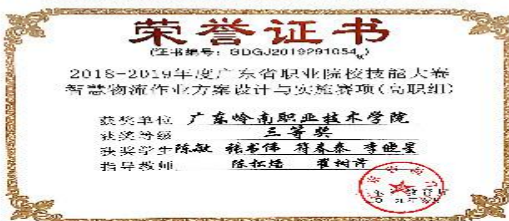 荣誉证书
(证书编号：GDGJ2019291054)
2018-2019年度广东省职业院校技能大赛
智慧物流作业方案设计与实施赛项(高职组)
获奖单位 广东岭南职业技术学院
获奖等级 三等奖
获奖学生 陈敏 张书伟 符春泰 李继星
指导教师 陈松焰